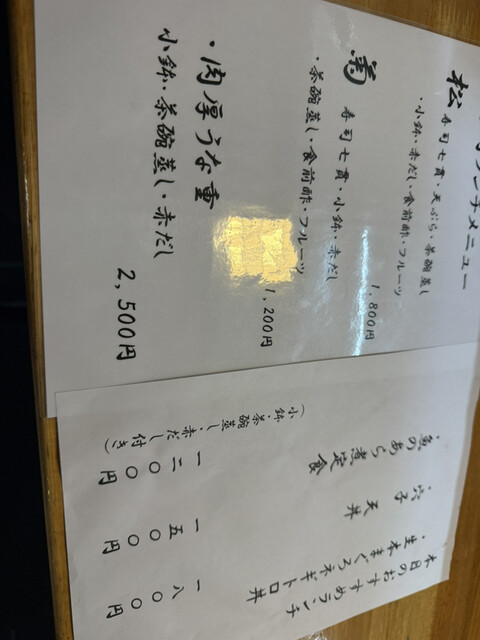 ランチメニュー
松
寿司七貫・天ぷら・茶碗蒸し
・小鉢・赤だし・食前酢・フルーツ
1,800円
菊
寿司七貫・小鉢・赤だし
・茶碗蒸し・食前酢・フルーツ
1,200円
・肉厚うな重
小鉢・茶碗蒸し・赤だし
2,500円
本日のおすすめランチ
・生本まぐろネギトロ丼
一八〇〇円
・穴子天丼
一五〇〇円
・魚のあら煮定食
一二〇〇円
(小鉢・茶碗蒸し・赤だし付き)